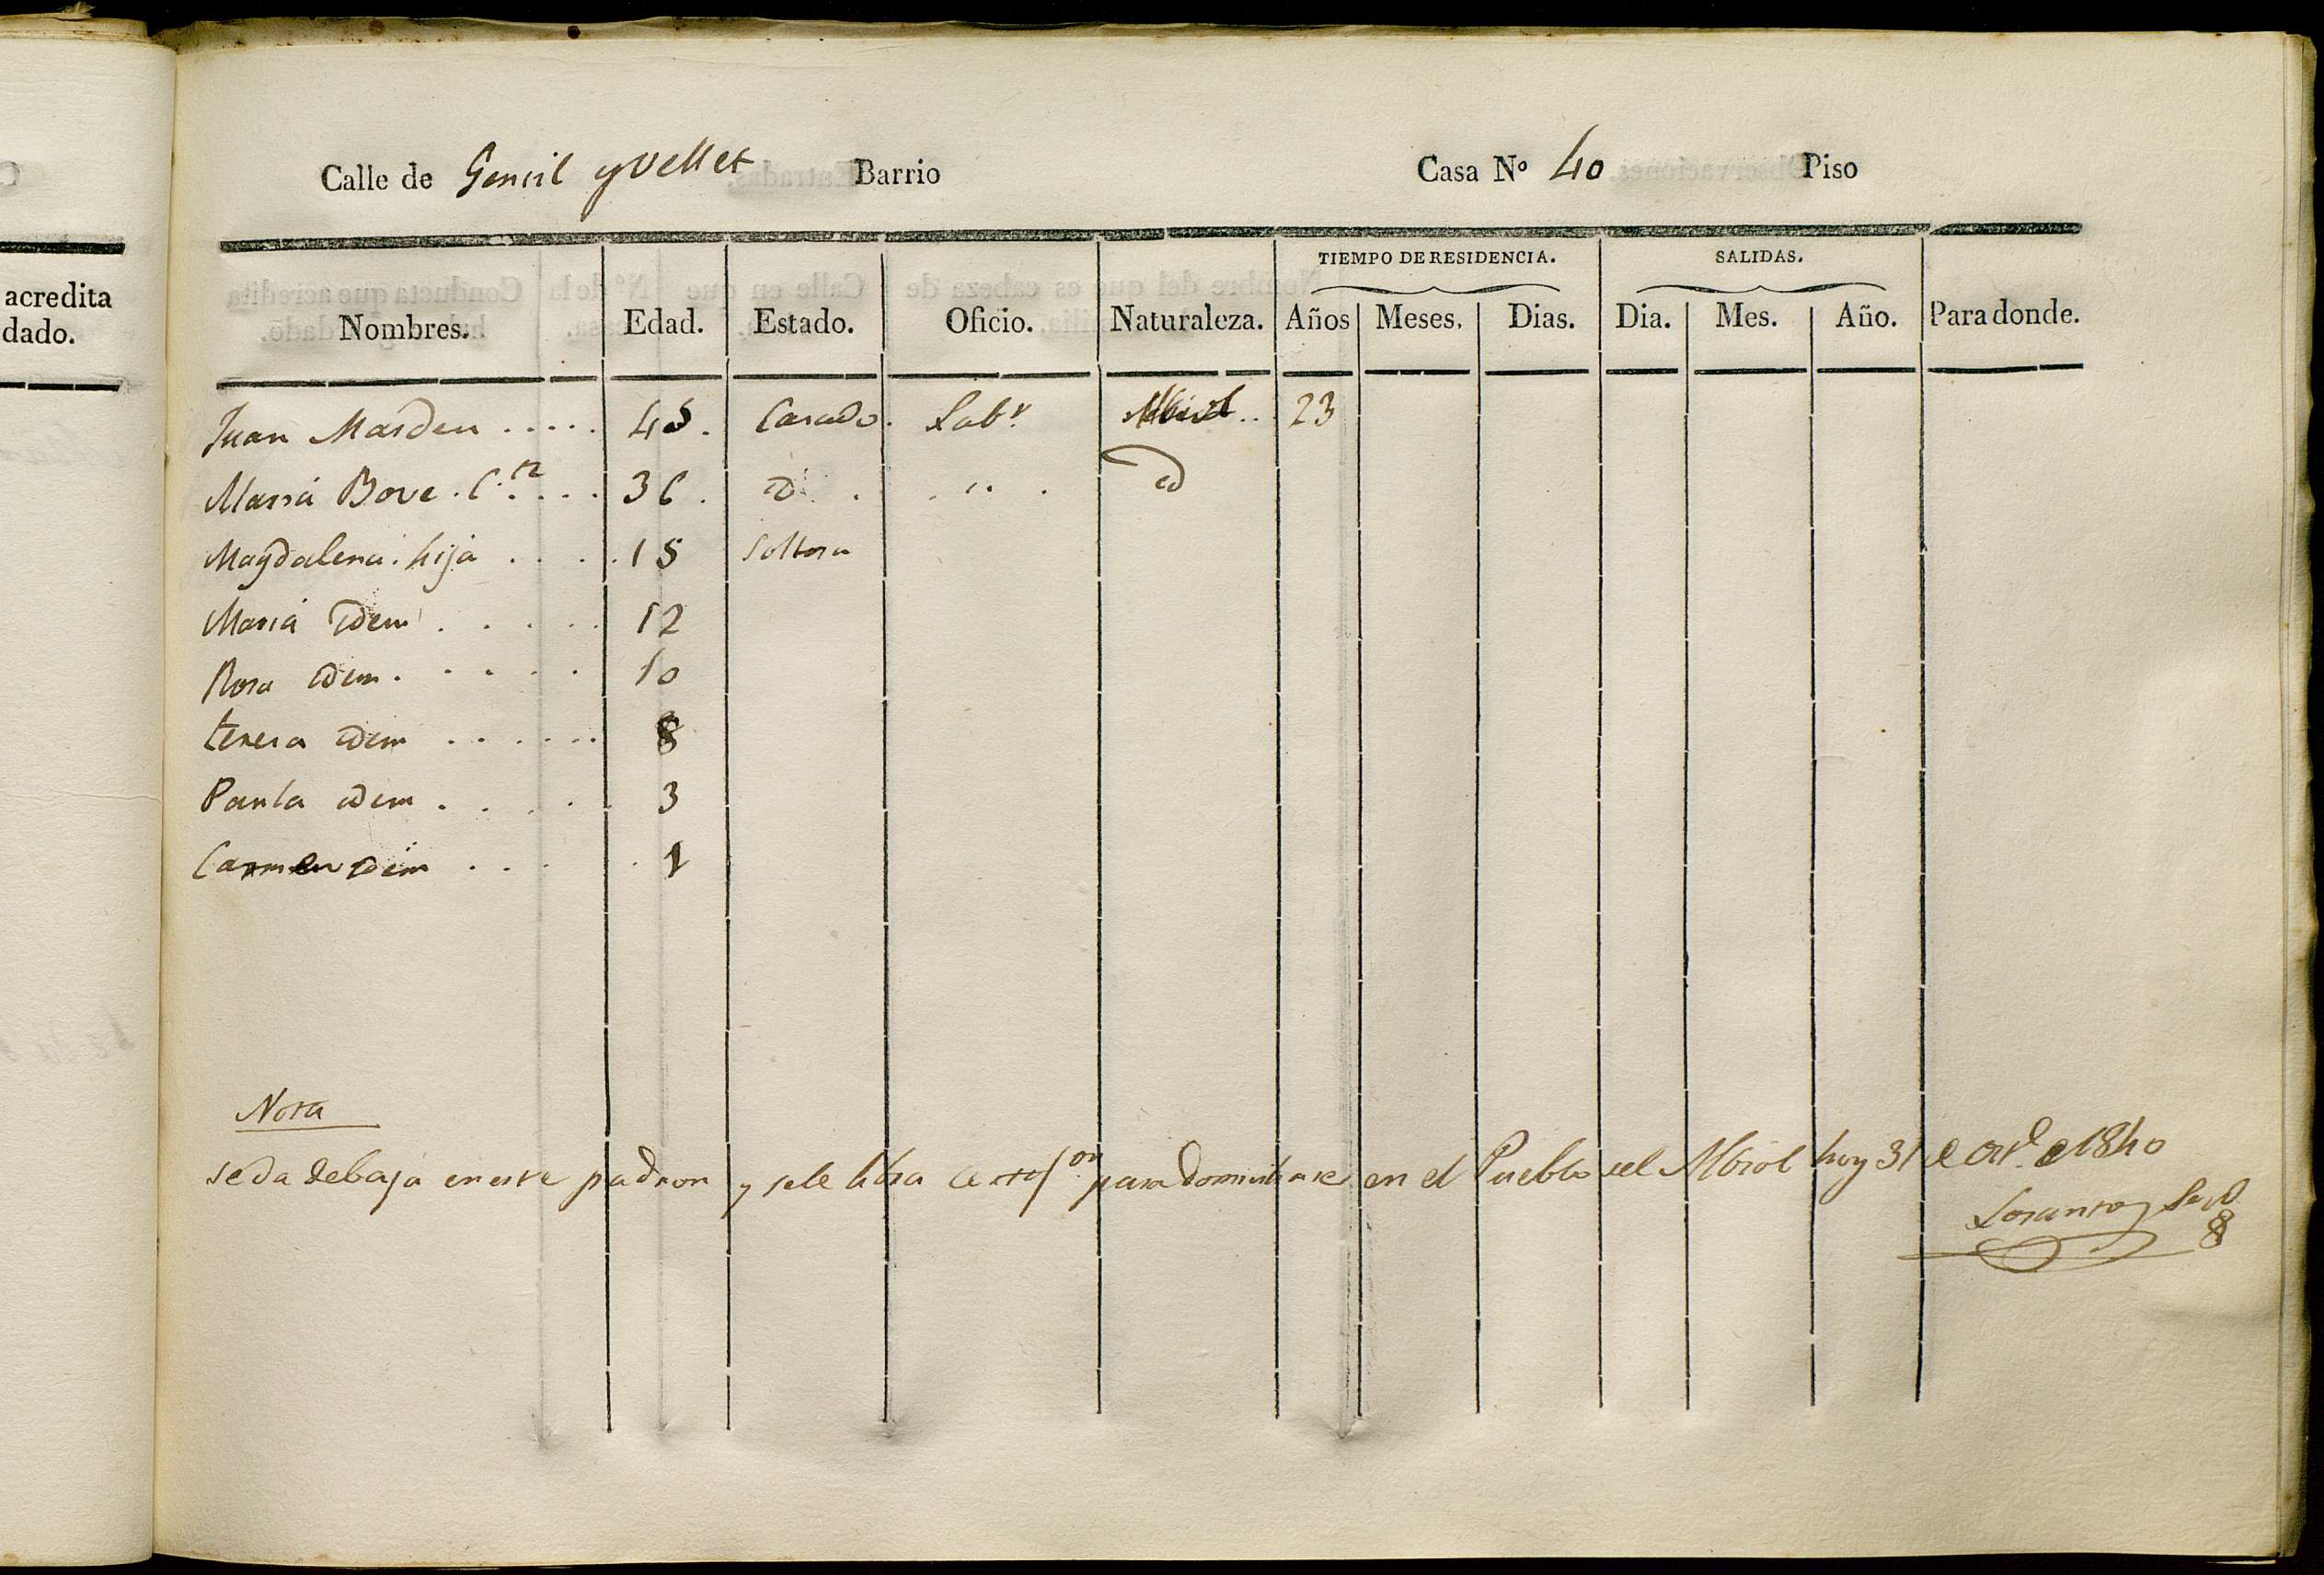 acredita
dado.
Calle de Gensil y Vellet Barrio Casa Nº 40 Piso
TIEMPO DE RESIDENCIA. SALIDAS.
Nombres. Edad. Estado. Oficio. Naturaleza. Años Meses. Dias. Dia. Mes. Año. Para donde.
Juan Masdeu ..... 45. Casado. Labr. Albiol .. 23
Maria Bove. C.te ... 36. id . . " . id
Magdalena. hija .... 15 Soltera
Maria idem ..... 12
Rosa idem ..... 10
teresa idem ...... 8
Paula idem .... 3
Carmen idem .... 1
Nota
se da de baja en este padron y se le libra certifon para domiciliarse en el Pueblo del Albiol hoy 31 de de 1840